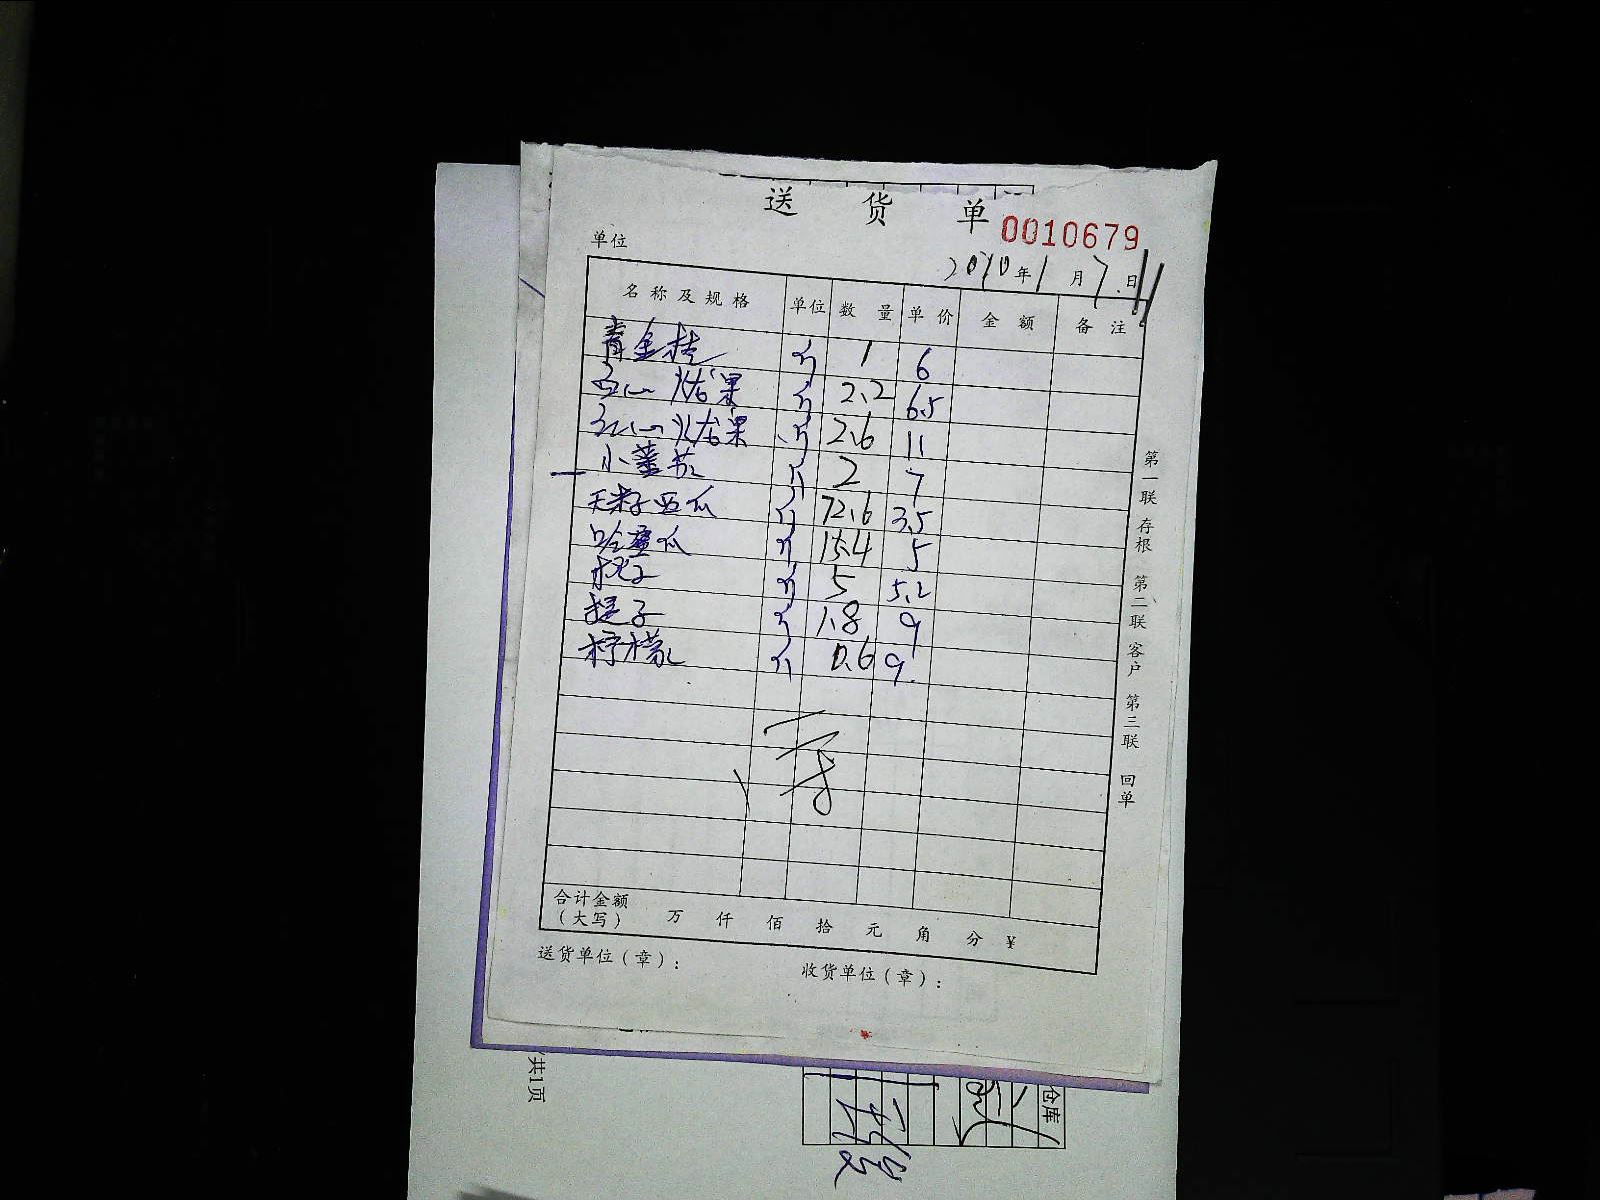 送货单
0010679
单位
2010年1月7日
名称及规格 单位 数量 单价 金额 备注
青金桔 斤 1 6
白心火龙果 斤 2.2 6.5
红心火龙果 斤 2.6 11
小蕃茄 斤 2 7
无籽西瓜 斤 72.6 3.5
哈蜜瓜 斤 15.4 5
桃子 斤 5 5.2
提子 斤 1.8 9
柠檬 斤 0.6 9.
合计金额
(大写) 万 仟 佰 拾 元 角 分 ¥
送货单位(章):
收货单位(章):
第一联 存根 第二联 客户 第三联 回单
共1页
仓库